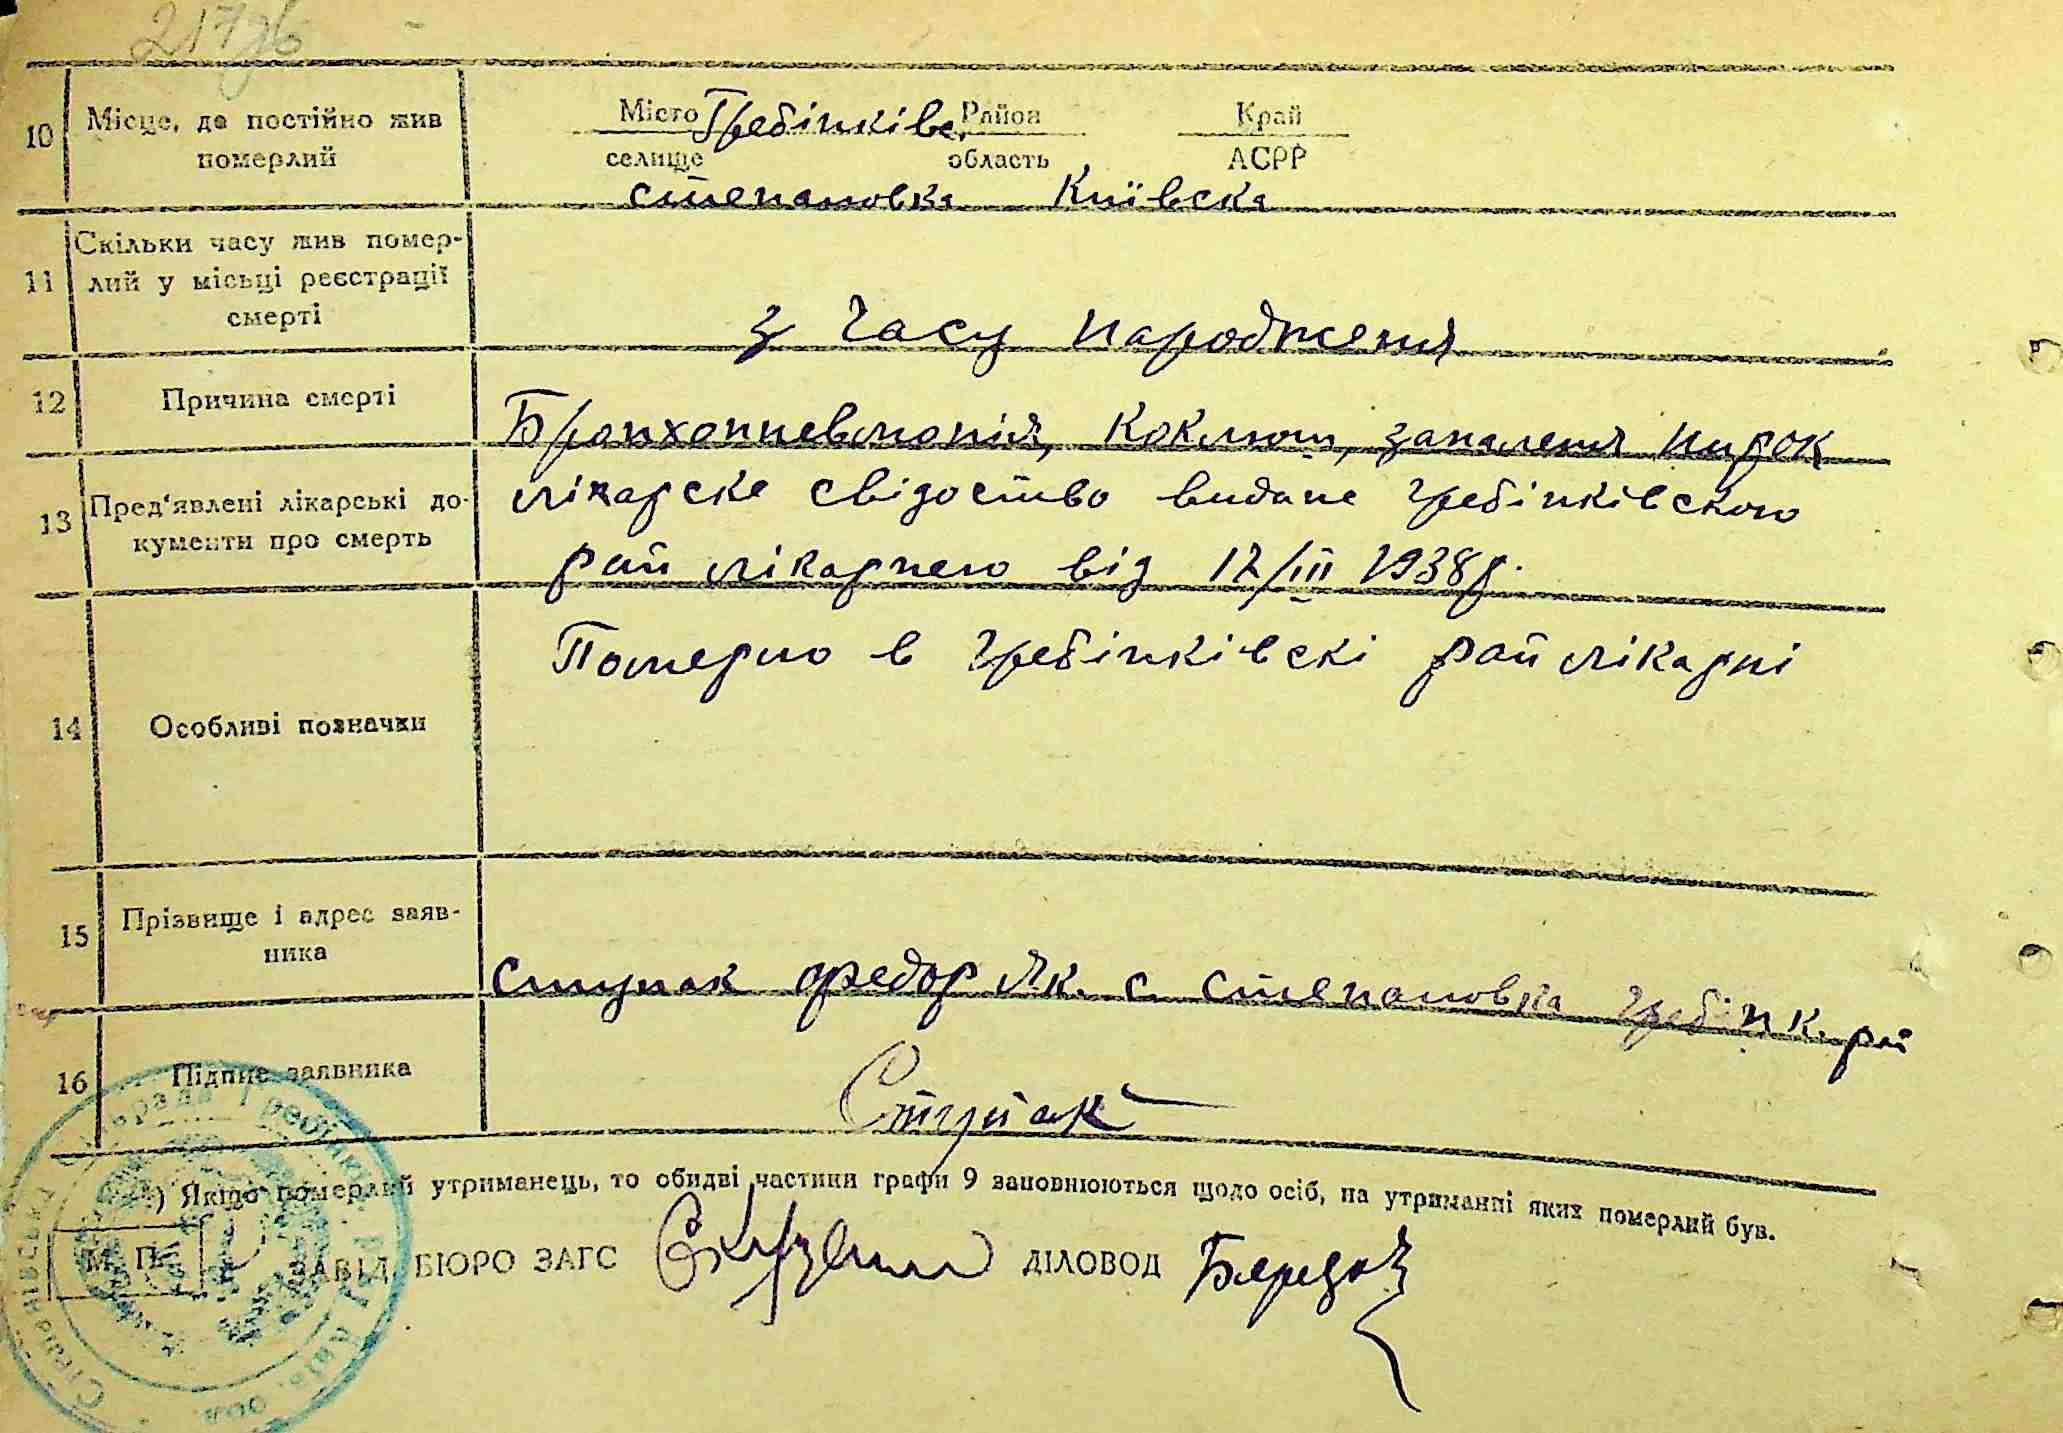 217зб
10 Місце, де постійно жив Місто Гребінківс. Район Край
померлий селище область АСРР
степановка Київска
Скільки часу жив помер-
11 лий у місьці реєстрації
смерті з часу народження
12 Причина смерті Бронхопневмонія, коклюш, запалення нирок
13 Пред'явлені лікарські до- лікарске свідоство видане гребінківского
кументи про смерть рай лікарнею від 12/III 1938р.
Померло в гребінківскі рай лікарні
14 Особливі позначки
15 Прізвище і адрес заяв-
ника ступак федор Як. с. степановка гребінк. рай
16 Підпис заявника Ступак
) Якщо померлий утриманець, то обидві частини графи 9 заповнюються щодо осіб, на утриманні яких померлий був.
М. П. ЗАВІД. БЮРО ЗАГС ДІЛОВОД